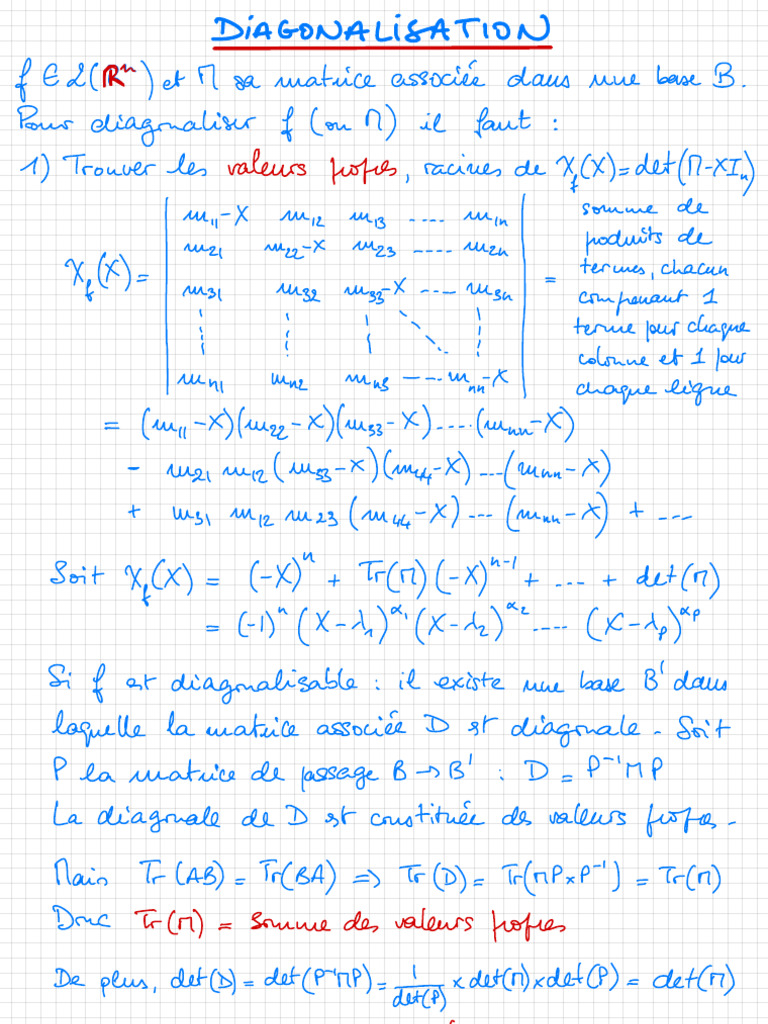 DIAGONALISATION
f ∈ L(ℝⁿ) et M sa matrice associée dans une base B.
Pour diagonaliser f (ou M) il faut :
1) Trouver les valeurs propres, racines de χ_f(X) = det(M-XI_n)
χ_f(X) = | m₁₁-X m₁₂ m₁₃ .... m₁ₙ |
| m₂₁ m₂₂-X m₂₃ .... m₂ₙ |
| m₃₁ m₃₂ m₃₃-X .... m₃ₙ |
| mₙ₁ mₙ₂ mₙ₃ .... mₙₙ-X |
= somme de
produits de
termes, chacun
comprenant 1
terme pour chaque
colonne et 1 pour
chaque ligne
= (m₁₁-X)(m₂₂-X)(m₃₃-X)....(mₙₙ-X)
- m₂₁ m₁₂ (m₃₃-X)(m₄₄-X)...(mₙₙ-X)
+ m₃₁ m₁₂ m₂₃ (m₄₄-X)...(mₙₙ-X) + ...
Soit χ_f(X) = (-X)ⁿ + Tr(M)(-X)ⁿ⁻¹ + ... + det(M)
= (-1)ⁿ (X-λ₁)^α₁ (X-λ₂)^α₂ .... (X-λ_p)^α_p
Si f est diagonalisable : il existe une base B' dans
laquelle la matrice associée D est diagonale. Soit
P la matrice de passage B → B' : D = P⁻¹MP
La diagonale de D est constituée des valeurs propres.
Mais Tr(AB) = Tr(BA) ⇒ Tr(D) = Tr(MP×P⁻¹) = Tr(M)
Donc Tr(M) = somme des valeurs propres
De plus, det(D) = det(P⁻¹MP) = 1/det(P) × det(M) × det(P) = det(M)